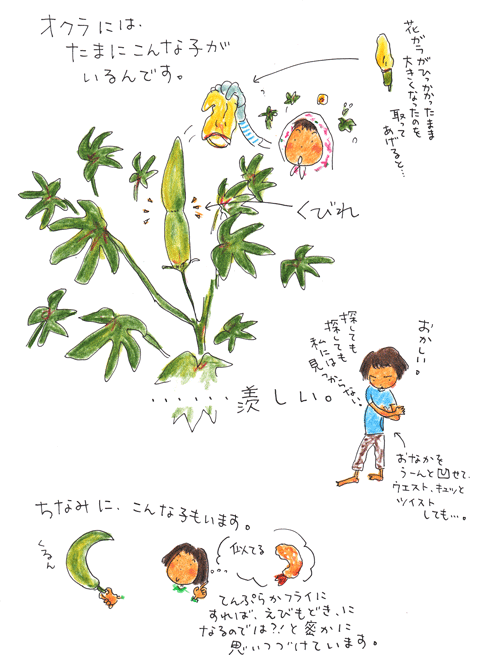 オクラには、
たまにこんな子が
いるんです。
花ガラがひっかかったまま
大きくなったのを
取って
あげると…
くびれ
……羨しい。
おかしい。
探しても
探しても
私には
見つからない。
おなかを
うーんと凹せて、
ウエスト、キュッと
ツイスト
しても…。
ちなみに、こんな子もいます。
くるん
似てる
てんぷらかフライに
すれば、えびもどき、に
なるのでは？！と密かに
思いつづけています。